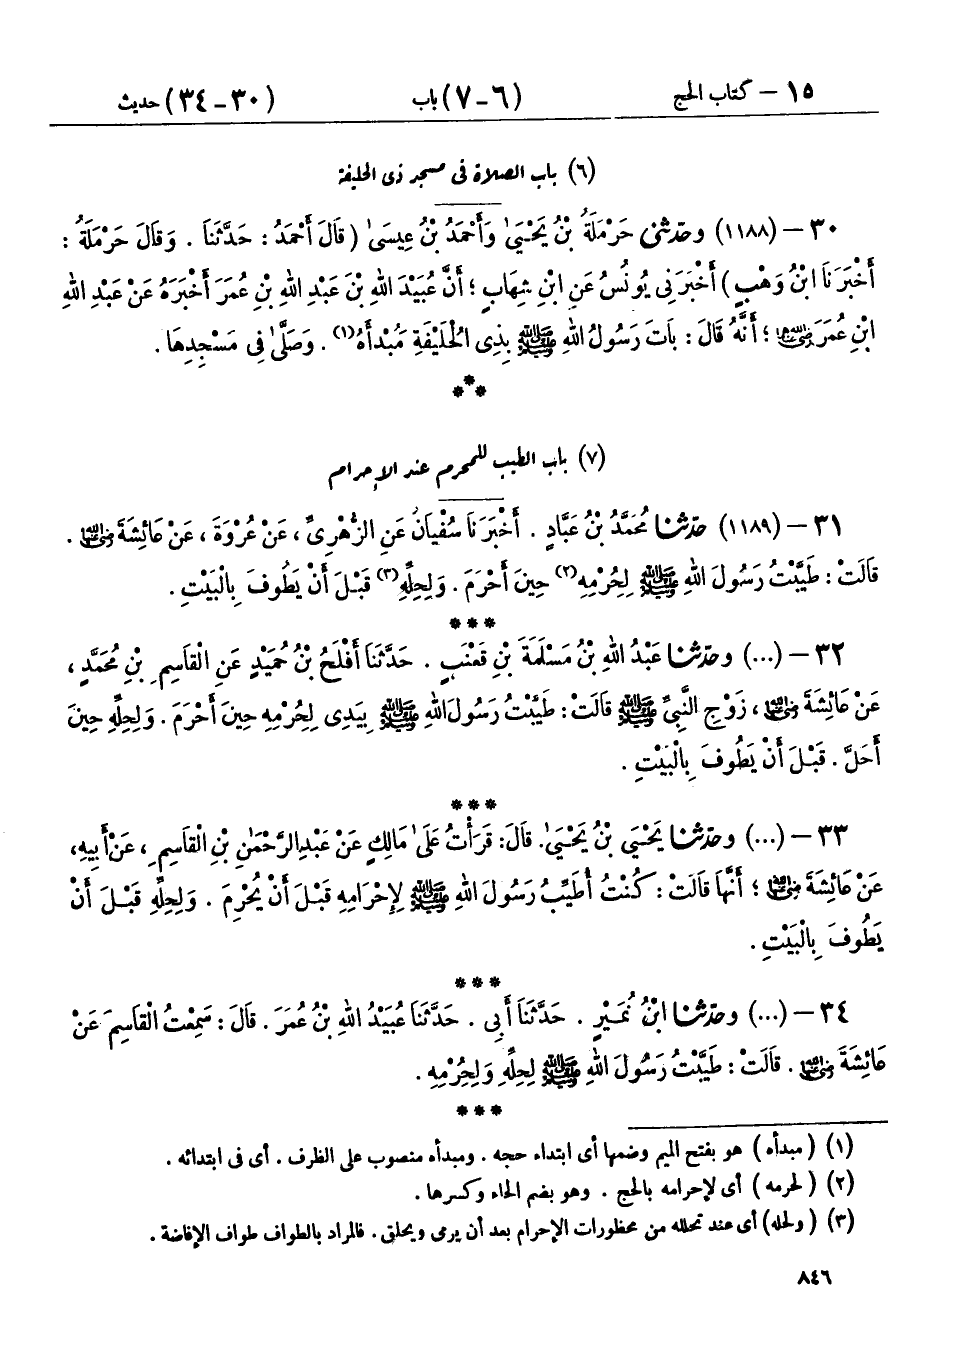 ١٥ – كتاب الحج (٦-٧) باب (٣٠-٣٤) حديث
(٦) باب الصلاة فى مسجد ذى الحليفة
٣٠ – (١١٨٨) وحَدَّثَنِى حَرْمَلَةُ بْنُ يَحْيَىٰ وَأَحْمَدُ بْنُ عِيسَىٰ (قَالَ أَحْمَدُ: حَدَّثَنَا. وَقَالَ حَرْمَلَةُ:
أَخْبَرَنَا ابْنُ وَهْبٍ) أَخْبَرَنِى يُونُسُ عَنِ ابْنِ شِهَابٍ؛ أَنَّ عُبَيْدَ اللهِ بْنَ عَبْدِ اللهِ بْنِ عُمَرَ أَخْبَرَهُ عَنْ عَبْدِ اللهِ
ابْنِ عُمَرَ رضي الله عنهما؛ أَنَّهُ قَالَ: بَاتَ رَسُولُ اللهِ ﷺ بِذِى الْحُلَيْفَةِ مَبْدَأَهُ(١). وَصَلَّىٰ فِى مَسْجِدِهَا.
***
(٧) باب الطيب للمحرم عند الإحرام
٣١ – (١١٨٩) حَدَّثَنَا مُحَمَّدُ بْنُ عَبَّادٍ. أَخْبَرَنَا سُفْيَانُ عَنِ الزُّهْرِىِّ، عَنْ عُرْوَةَ، عَنْ عَائِشَةَ رضي الله عنها.
قَالَتْ: طَيَّبْتُ رَسُولَ اللهِ ﷺ لِحُرْمِهِ(٢) حِينَ أَحْرَمَ. وَلِحِلِّهِ(٣) قَبْلَ أَنْ يَطُوفَ بِالْبَيْتِ.
***
٣٢ – (...) وحَدَّثَنَا عَبْدُ اللهِ بْنُ مَسْلَمَةَ بْنِ قَعْنَبٍ. حَدَّثَنَا أَفْلَحُ بْنُ حُمَيْدٍ عَنِ الْقَاسِمِ بْنِ مُحَمَّدٍ،
عَنْ عَائِشَةَ رضي الله عنها، زَوْجِ النَّبِىِّ ﷺ قَالَتْ: طَيَّبْتُ رَسُولَ اللهِ ﷺ بِيَدِى لِحُرْمِهِ حِينَ أَحْرَمَ. وَلِحِلِّهِ حِينَ
أَحَلَّ. قَبْلَ أَنْ يَطُوفَ بِالْبَيْتِ.
***
٣٣ – (...) وحَدَّثَنَا يَحْيَىٰ بْنُ يَحْيَىٰ. قَالَ: قَرَأْتُ عَلَىٰ مَالِكٍ عَنْ عَبْدِ الرَّحْمَٰنِ بْنِ الْقَاسِمِ، عَنْ أَبِيهِ،
عَنْ عَائِشَةَ رضي الله عنها؛ أَنَّهَا قَالَتْ: كُنْتُ أُطَيِّبُ رَسُولَ اللهِ ﷺ لِإِحْرَامِهِ قَبْلَ أَنْ يُحْرِمَ. وَلِحِلِّهِ قَبْلَ أَنْ
يَطُوفَ بِالْبَيْتِ.
***
٣٤ – (...) وحَدَّثَنَا ابْنُ نُمَيْرٍ. حَدَّثَنَا أَبِى. حَدَّثَنَا عُبَيْدُ اللهِ بْنُ عُمَرَ. قَالَ: سَمِعْتُ الْقَاسِمَ عَنْ
عَائِشَةَ رضي الله عنها. قَالَتْ: طَيَّبْتُ رَسُولَ اللهِ ﷺ لِحِلِّهِ وَلِحُرْمِهِ.
***
(١) (مبدأه) هو بفتح الميم وضمها أى ابتداء حجه. ومبدأه منصوب على الظرف. أى فى ابتدائه.
(٢) (لحرمه) أى لإحرامه بالحج. وهو بضم الحاء وكسرها.
(٣) (ولحله) أى عند تحلله من محظورات الإحرام بعد أن يرمى ويحلق. فالمراد بالطواف طواف الإفاضة.
٨٤٦